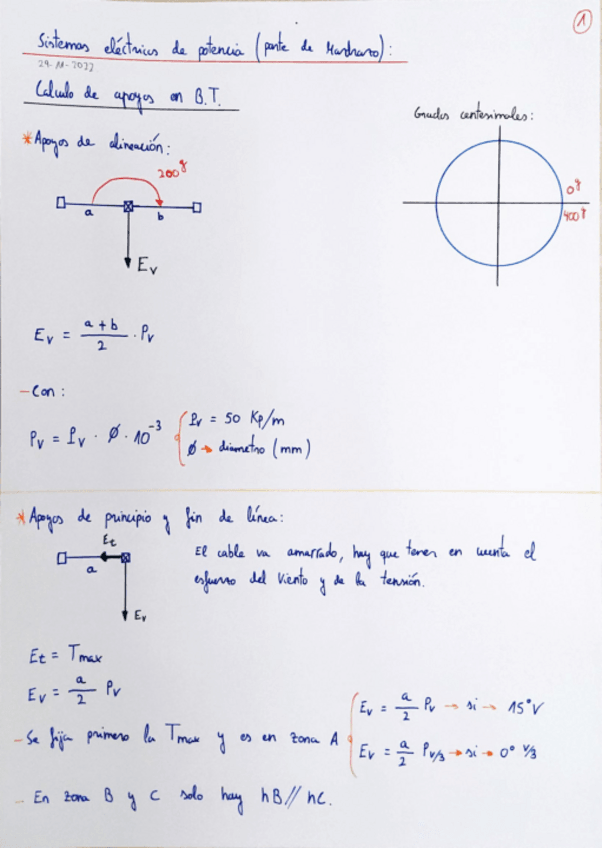 1
Sistemas eléctricos de potencia (parte de Mardhazo):
29-11-2022
Calculo de apoyos en B.T.
Grados centesimales:
* Apoyos de alineación:
200^g
0^g
400^g
a
b
E_v
E_v = (a+b)/2 · P_v
- Con:
P_v = P_v · Ø · 10^-3
P_v = 50 Kp/m
Ø → diametro (mm)
* Apoyos de principio y fin de línea:
E_t
a
E_v
El cable va amarrado, hay que tener en cuenta el
esfuerzo del viento y de la tensión.
E_t = T_max
E_v = a/2 P_v
- Se fija primero la T_max y es en zona A
E_v = a/2 P_v → si → 15° V
E_v = a/2 P_v/3 → si → 0° V/3
- En zona B y C solo hay hB // hC.